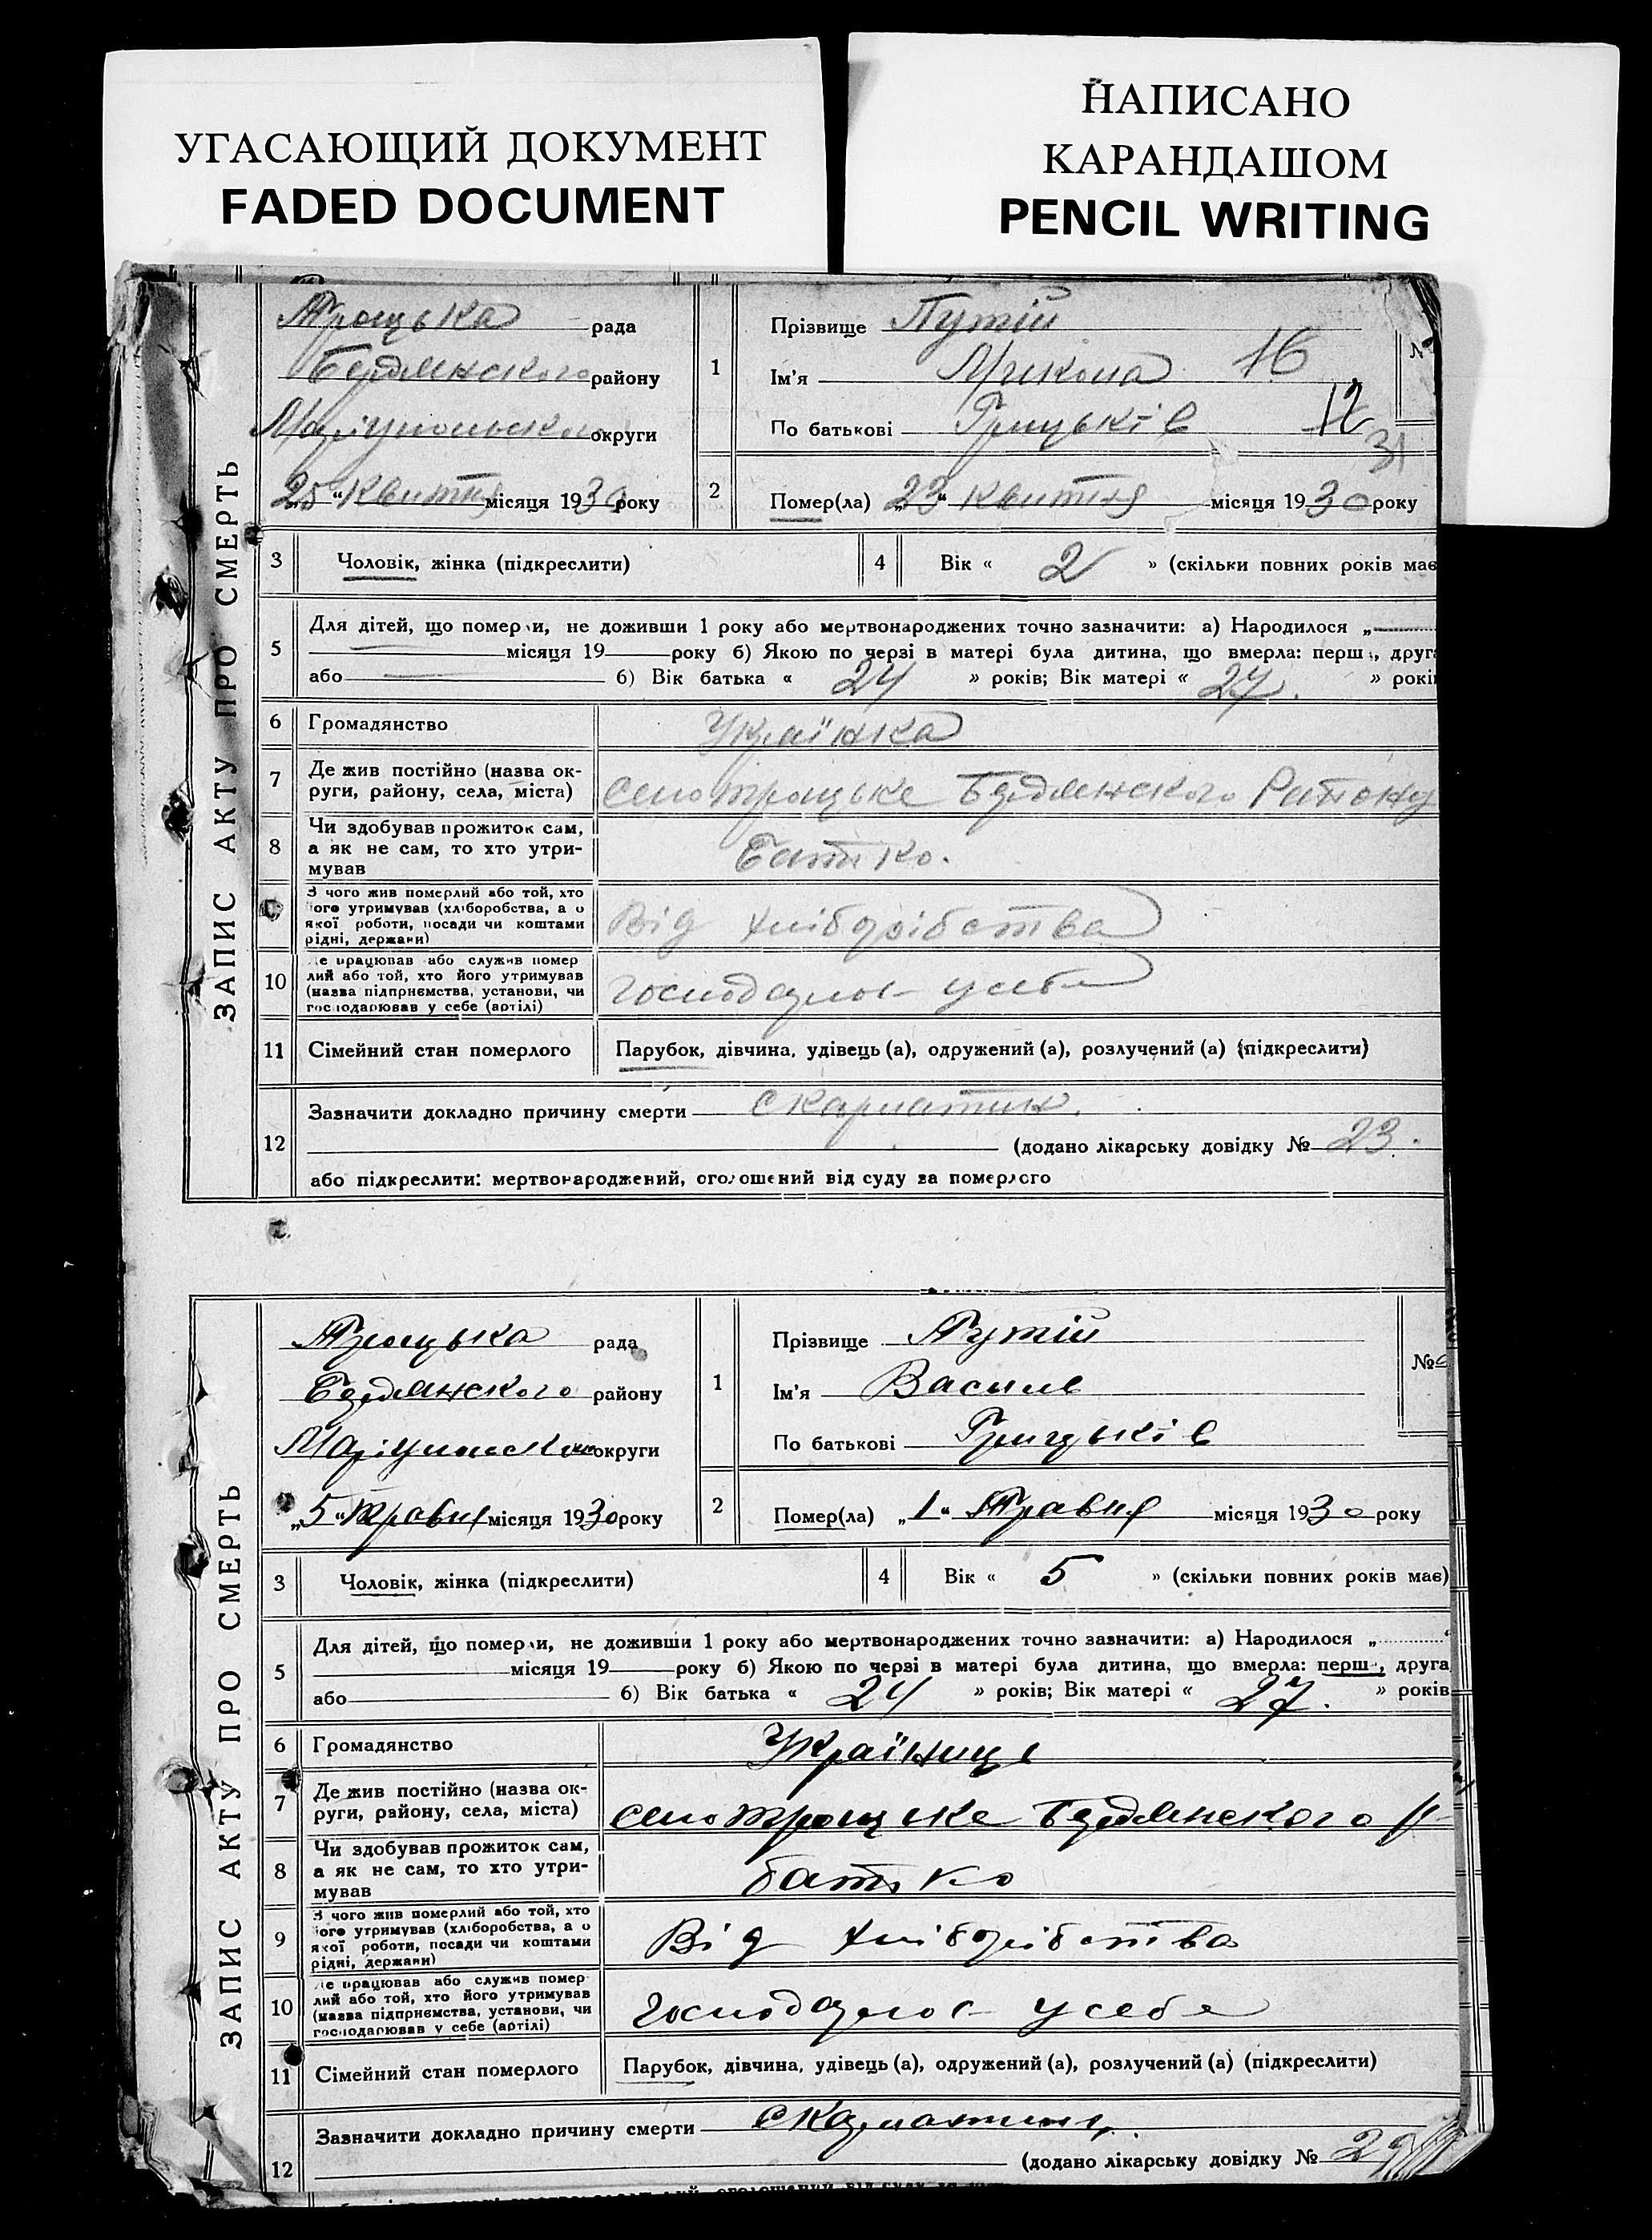 УГАСАЮЩИЙ ДОКУМЕНТ
FADED DOCUMENT
НАПИСАНО
КАРАНДАШОМ
PENCIL WRITING
ЗАПИС АКТУ ПРО СМЕРТЬ
Троцька рада
Бердянского району
Маріупольского округи
"25" Квітня місяця 1930 року
1
Прізвище Путій
Ім'я Микола 16
По батькові Грицьків 12
31
№
2
Помер(ла) "23" квитня місяця 1930 року
3 Чоловік, жінка (підкреслити)
4 Вік « 2 » (скільки повних років має
5 Для дітей, що померли, не доживши 1 року або мертвонароджених точно зазначити: а) Народилося „
місяця 19 року б) Якою по черзі в матері була дитина, що вмерла: перша, друга
або б) Вік батька « 24 » років; Вік матері « 27. » років
6 Громадянство Українка
7 Де жив постійно (назва ок-
руги, району, села, міста) село Троцьке Бердянского Району
8 Чи здобував прожиток сам,
а як не сам, то хто утри-
мував Батько.
9 З чого жив померлий або той, хто
його утримував (хліборобства, а о
якої роботи, посади чи коштами
рідні, держави) Від хліборобства
10 Де працював або служив помер
лий або той, хто його утримував
(назва підприємства, установи, чи
господарював у себе (артілі) господарює усебе
11 Сімейний стан померлого Парубок, дівчина, удівець (а), одружений (а), розлучений (а) (підкреслити)
12 Зазначити докладно причину смерти скарлатин.
(додано лікарську довідку № 23.
або підкреслити: мертвонароджений, оголошений від суду за померлого
ЗАПИС АКТУ ПРО СМЕРТЬ
Троцька рада
Бердянского району
округи
„5" Травня місяця 1930 року
1
Прізвище Путій
Ім'я Василь
По батькові Грицьків
№
2
Помер(ла) „1" Травня місяця 1930 року
3 Чоловік, жінка (підкреслити)
4 Вік « 5 » (скільки повних років має)
5 Для дітей, що померли, не доживши 1 року або мертвонароджених точно зазначити: а) Народилося „ "
місяця 19 року б) Якою по черзі в матері була дитина, що вмерла: перша, друга
або б) Вік батька « 24 » років; Вік матері « 27. » років
6 Громадянство Українець
7 Де жив постійно (назва ок-
руги, району, села, міста) село Троцьке Бердянского Р-
8 Чи здобував прожиток сам,
а як не сам, то хто утри-
мував батько
9 З чого жив померлий або той, хто
його утримував (хліборобства, а о
якої роботи, посади чи коштами
рідні, держави) Від хліборобства
10 Де працював або служив помер
лий або той, хто його утримував
(назва підприємства, установи, чи
господарював у себе (артілі) господарює усебе
11 Сімейний стан померлого Парубок, дівчина, удівець (а), одружений (а), розлучений (а) (підкреслити)
12 Зазначити докладно причину смерти скарлатини.
(додано лікарську довідку № 29